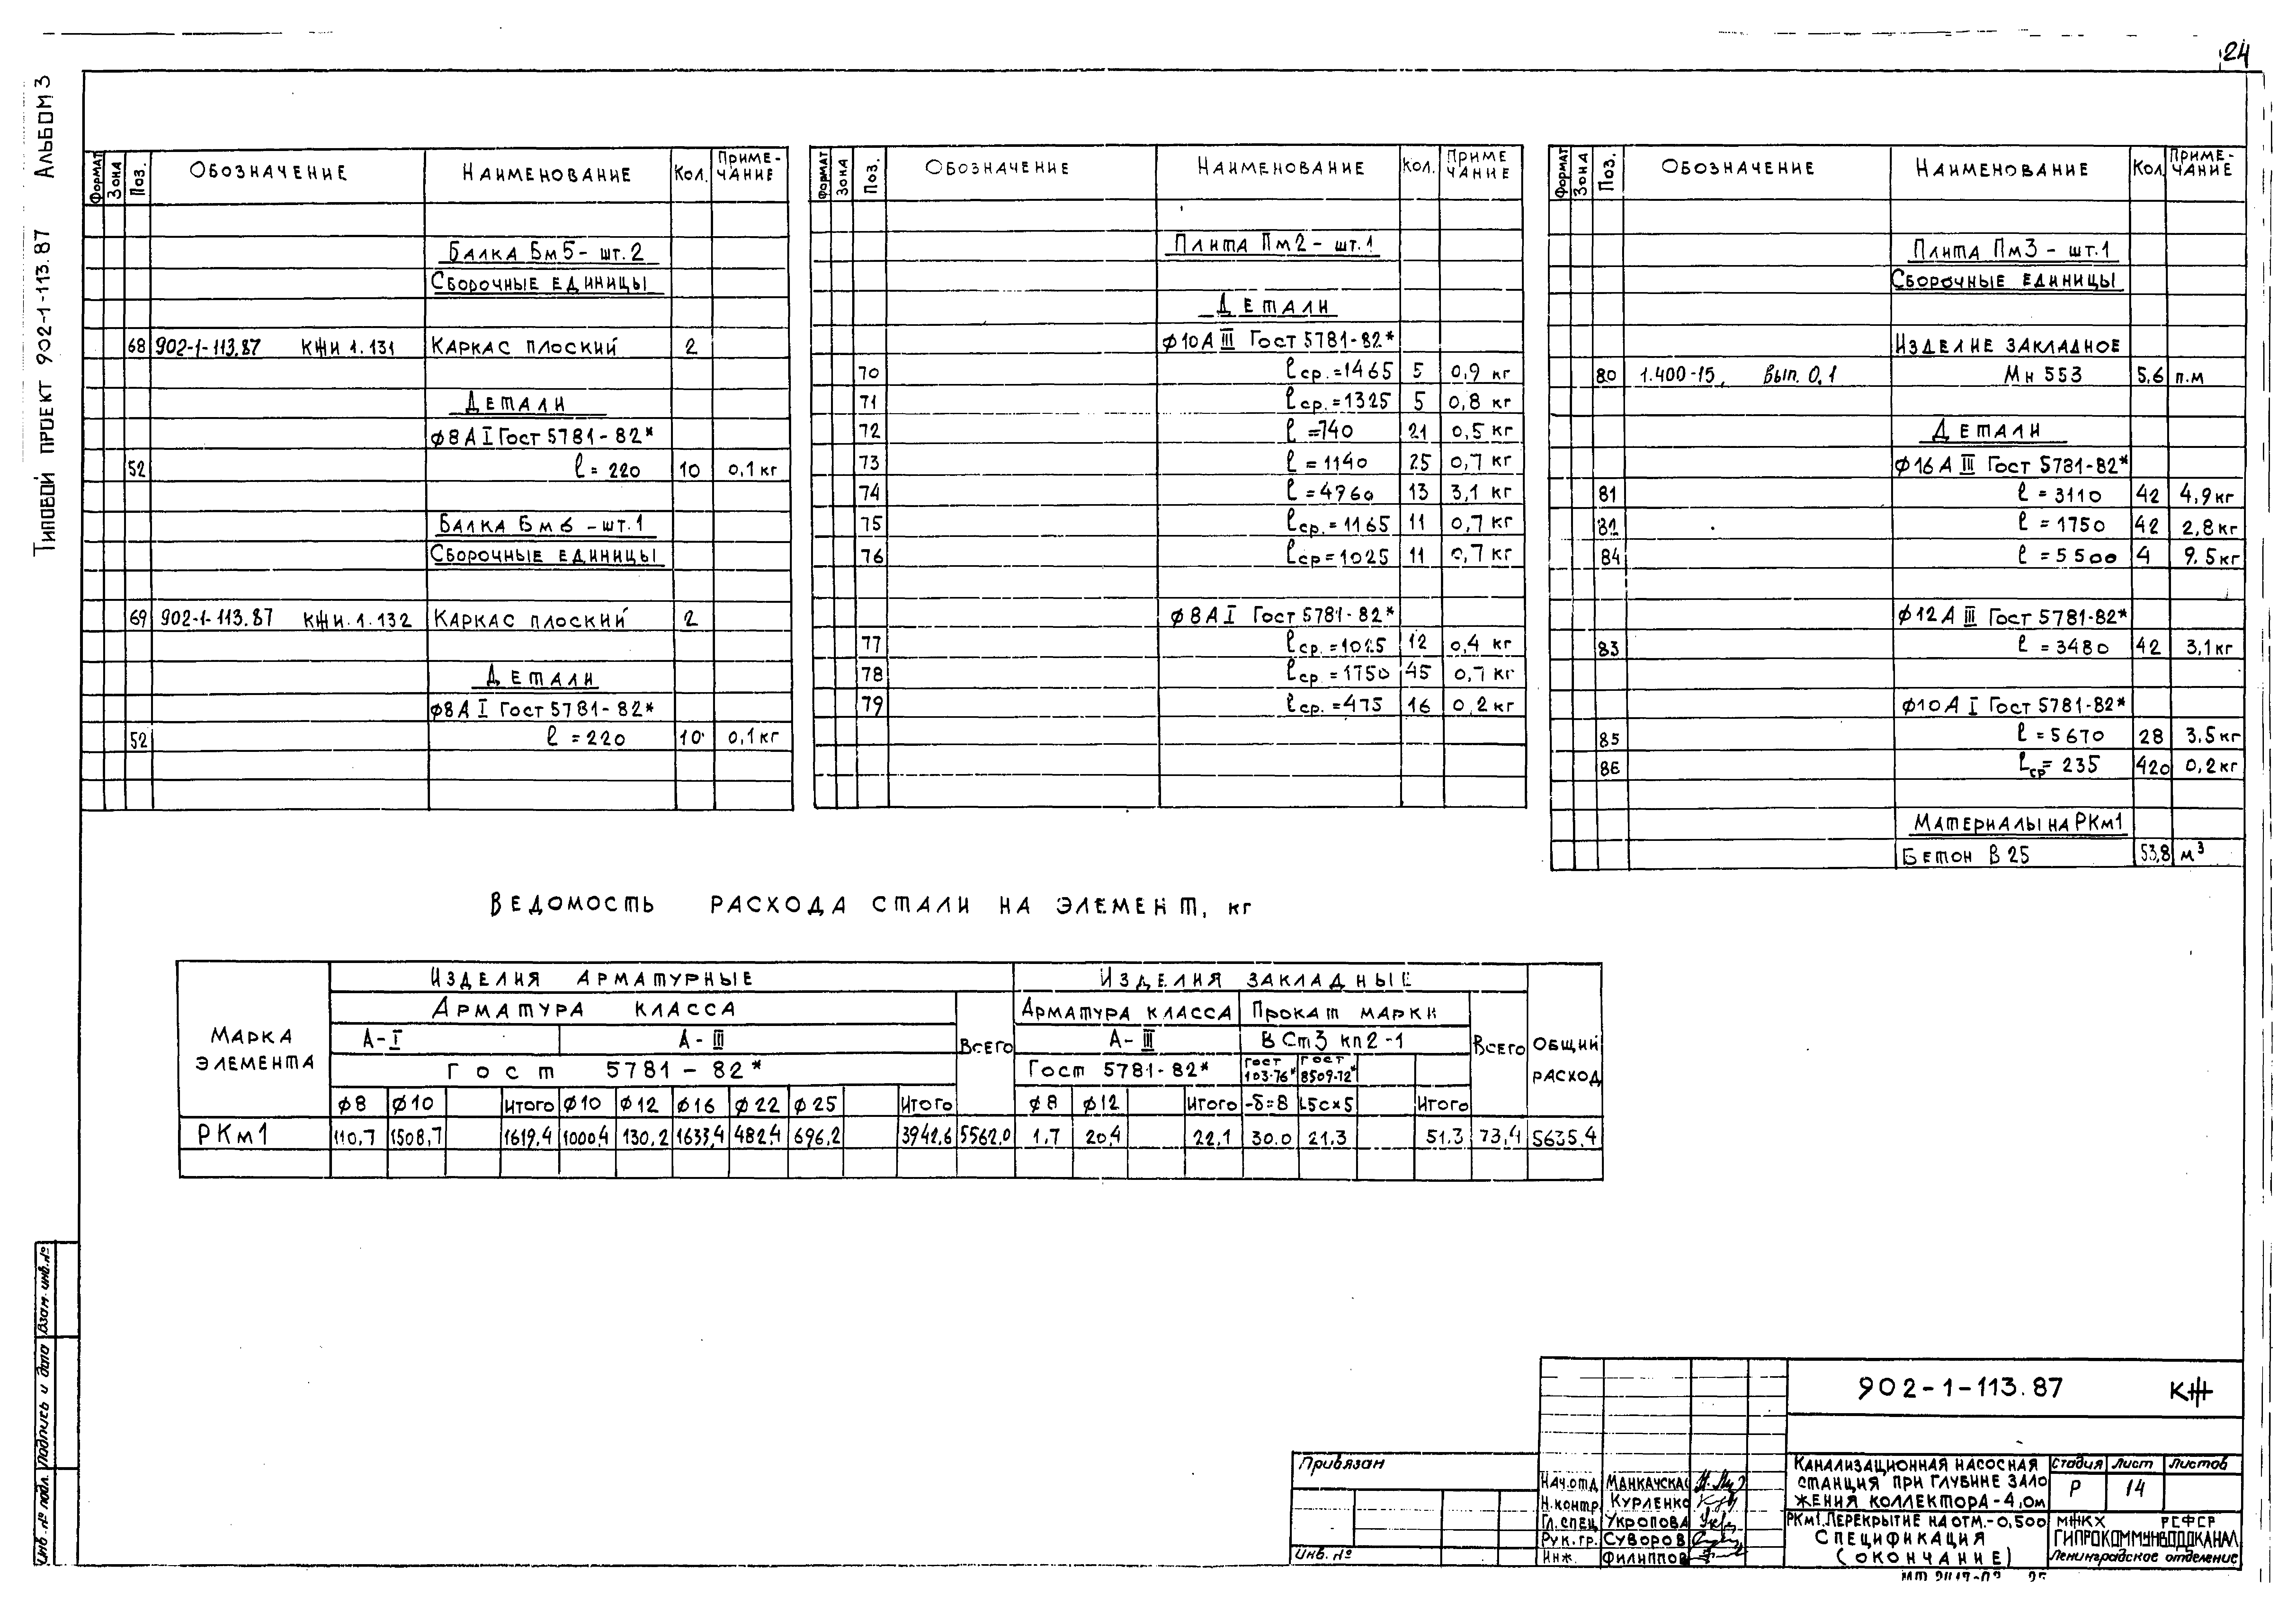 24
Типовой проект 902-1-113.87 Альбом 3
Формат Зона Поз. Обозначение Наименование Кол. Приме-чание
Балка Бм5 - шт. 2
Сборочные единицы
68 902-1-113.87 КЖИ 1.131 Каркас плоский 2
Детали
Ф8АI Гост 5781-82*
52 ℓ = 220 10 0,1 кг
Балка Бм6 - шт. 1
Сборочные единицы
69 902-1-113.87 КЖИ.1.132 Каркас плоский 2
Детали
Ф8АI Гост 5781-82*
52 ℓ = 220 10 0,1 кг
Формат Зона Поз. Обозначение Наименование Кол. Приме чание
Плита Пм2 - шт. 1
Детали
Ф10АIII Гост 5781-82*
70 ℓср. = 1465 5 0,9 кг
71 ℓср. = 1325 5 0,8 кг
72 ℓ = 740 21 0,5 кг
73 ℓ = 1140 25 0,7 кг
74 ℓ = 4960 13 3,1 кг
75 ℓср. = 1165 11 0,7 кг
76 ℓср = 1025 11 0,7 кг
Ф8АI Гост 5781-82*
77 ℓср. = 1025 12 0,4 кг
78 ℓср. = 1750 45 0,7 кг
79 ℓср. = 475 16 0,2 кг
Формат Зона Поз. Обозначение Наименование Кол. Приме-чание
Плита Пм3 - шт. 1
Сборочные единицы
Изделие закладное
80 1.400-15, Вып. 0,1 Мн 553 5,6 п.м
Детали
Ф16АIII Гост 5781-82*
81 ℓ = 3110 42 4,9 кг
82 ℓ = 1750 42 2,8 кг
84 ℓ = 5500 4 9,5 кг
Ф12АIII Гост 5781-82*
83 ℓ = 3480 42 3,1 кг
Ф10АI Гост 5781-82*
85 ℓ = 5670 28 3,5 кг
86 ℓср = 235 420 0,2 кг
Материалы на РКм1
Бетон В25 53,8 м³
Ведомость расхода стали на элемент, кг
Марка элемента
Изделия арматурные Изделия закладные
Арматура класса Всего Арматура класса Прокат марки Всего Общий расход
А-I А-III А-III ВСт3 кп2-1
Гост 5781-82* Гост 5781-82* Гост 103-76* Гост 8509-72*
ф8 ф10 Итого ф10 ф12 ф16 ф22 ф25 Итого ф8 ф12 Итого -δ=8 L50x5 Итого
РКм1 110,7 1508,7 1619,4 1000,4 130,2 1633,4 482,4 696,2 3942,6 5562,0 1,7 20,4 22,1 30.0 21.3 51.3 73,4 5635,4
Взам. инв. №
Подпись и дата
Инв. № подл.
Привязан
Инв. №
902-1-113.87 КЖ
Нач. отд Манкачская
Н. контр. Курленко
Гл. спец Укропова
Рук. гр. Суворов
Инж. Филиппов
Канализационная насосная станция при глубине зало жения коллектора - 4,0м
Стадия Лист Листов
Р 14
РКм1. Перекрытие на отм. -0,500
Спецификация
(окончание)
МЖКХ РСФСР
Гипрокоммунводоканал
Ленинградское отделение